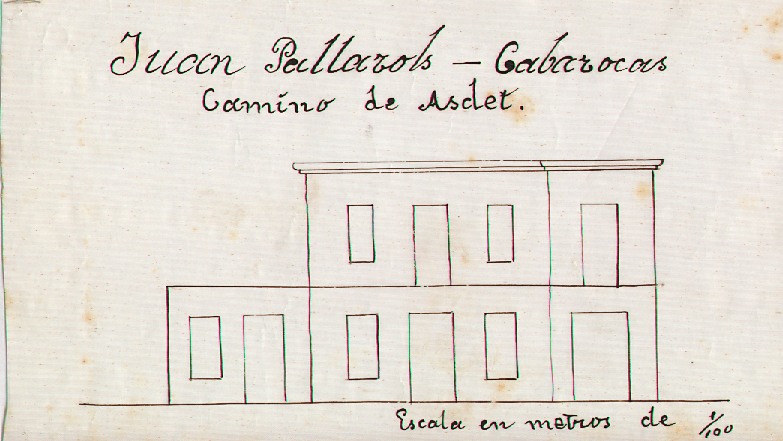 Juan Pallarols - Cabarocas
Camino de Asdet.
Escala en metros de 1/100